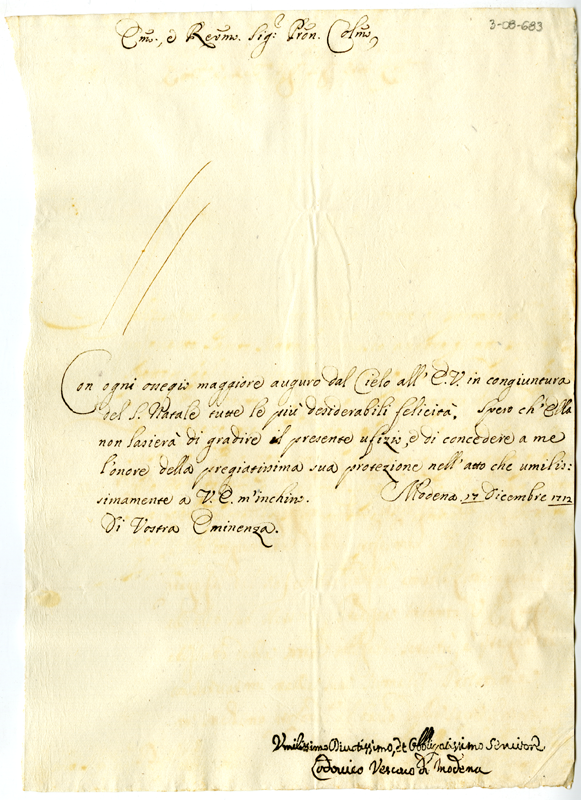 3-08-683
Em̃o., e Reṽmo. Sig.r Pron. Colm̃o,
Con ogni ossequio maggiore auguro dal Cielo all' E.V. in congiuntura
del S. Natale tutte le più desiderabili felicità. Spero ch' Ella
non lasierà di gradire il presente ufizio, e di concedere a me
l'onore della pregiatissima sua protezione nell' atto che umilis:
simamente a V. E. m'inchino. Modena 17 Dicembre 1712
Di Vostra Eminenza.
Umilissimo Divotissimo, et Obbligatissimo Servitore
Lodovico Vescovo di Modena